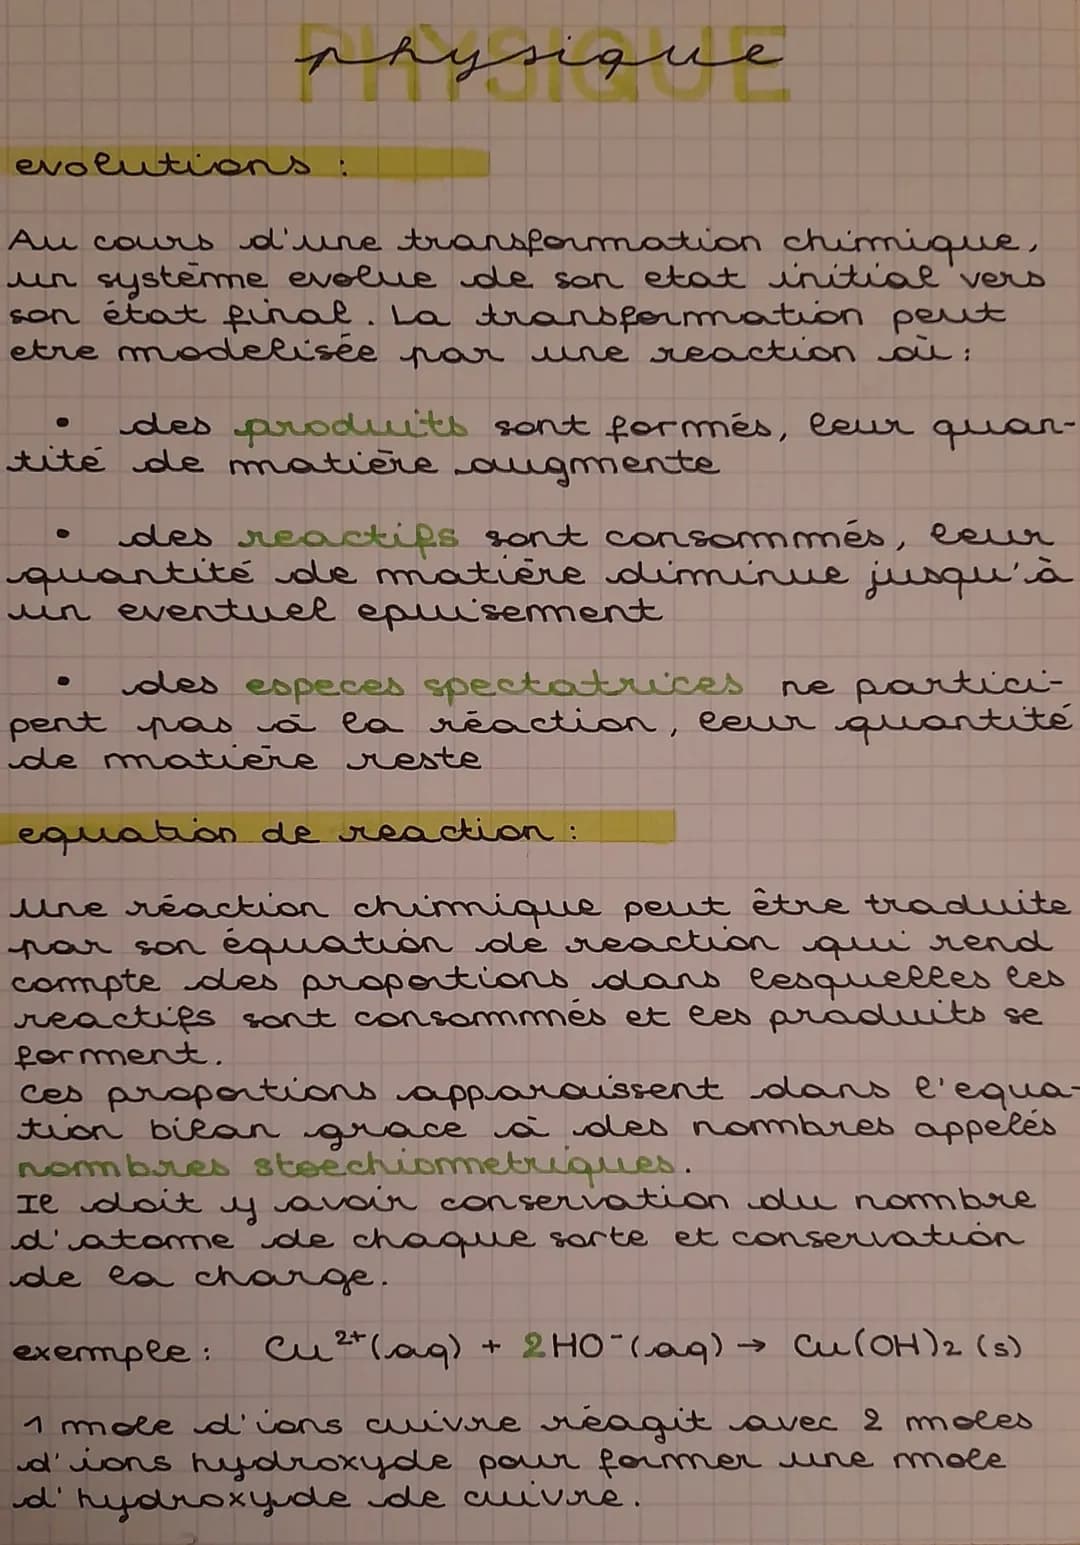 PHYSIQUE
physique
evolutions :
Au cours d'une transformation chimique,
un système evolue de son etat initial vers
son état final. La transformation peut
etre modelisée par une reaction où :
• des produits sont formés, leur quan-
tité de matière augmente
• des reactifs sont consommés, leur
quantité de matière diminue jusqu'à
un eventuel epuisement
• des especes spectatrices ne partici-
pent pas à la réaction, leur quantité
de matière reste
equation de reaction :
Une réaction chimique peut être traduite
par son équation de reaction qui rend
compte des proportions dans lesquelles les
reactifs sont consommés et les produits se
forment.
Ces proportions apparaissent dans l'equa-
tion bilan grace à des nombres appelés
nombres stoechiometriques.
Il doit y avoir conservation du nombre
d'atome de chaque sorte et conservation
de la charge.
exemple : Cu²⁺(aq) + 2HO⁻(aq) → Cu(OH)₂ (s)
1 mole d'ions cuivre réagit avec 2 moles
d'ions hydroxyde pour former une mole
d'hydroxyde de cuivre.